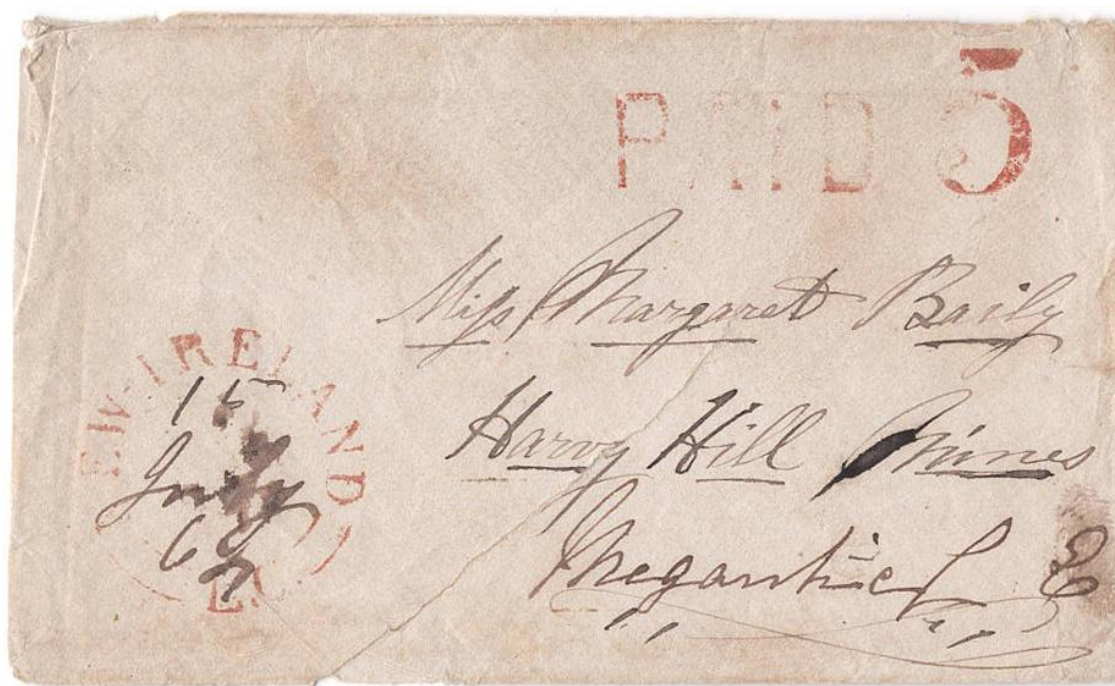 PAID 5
Miss Margaret Baily
Harvy Hill Mines
Megantic C E
EW-IRELAND
15
July